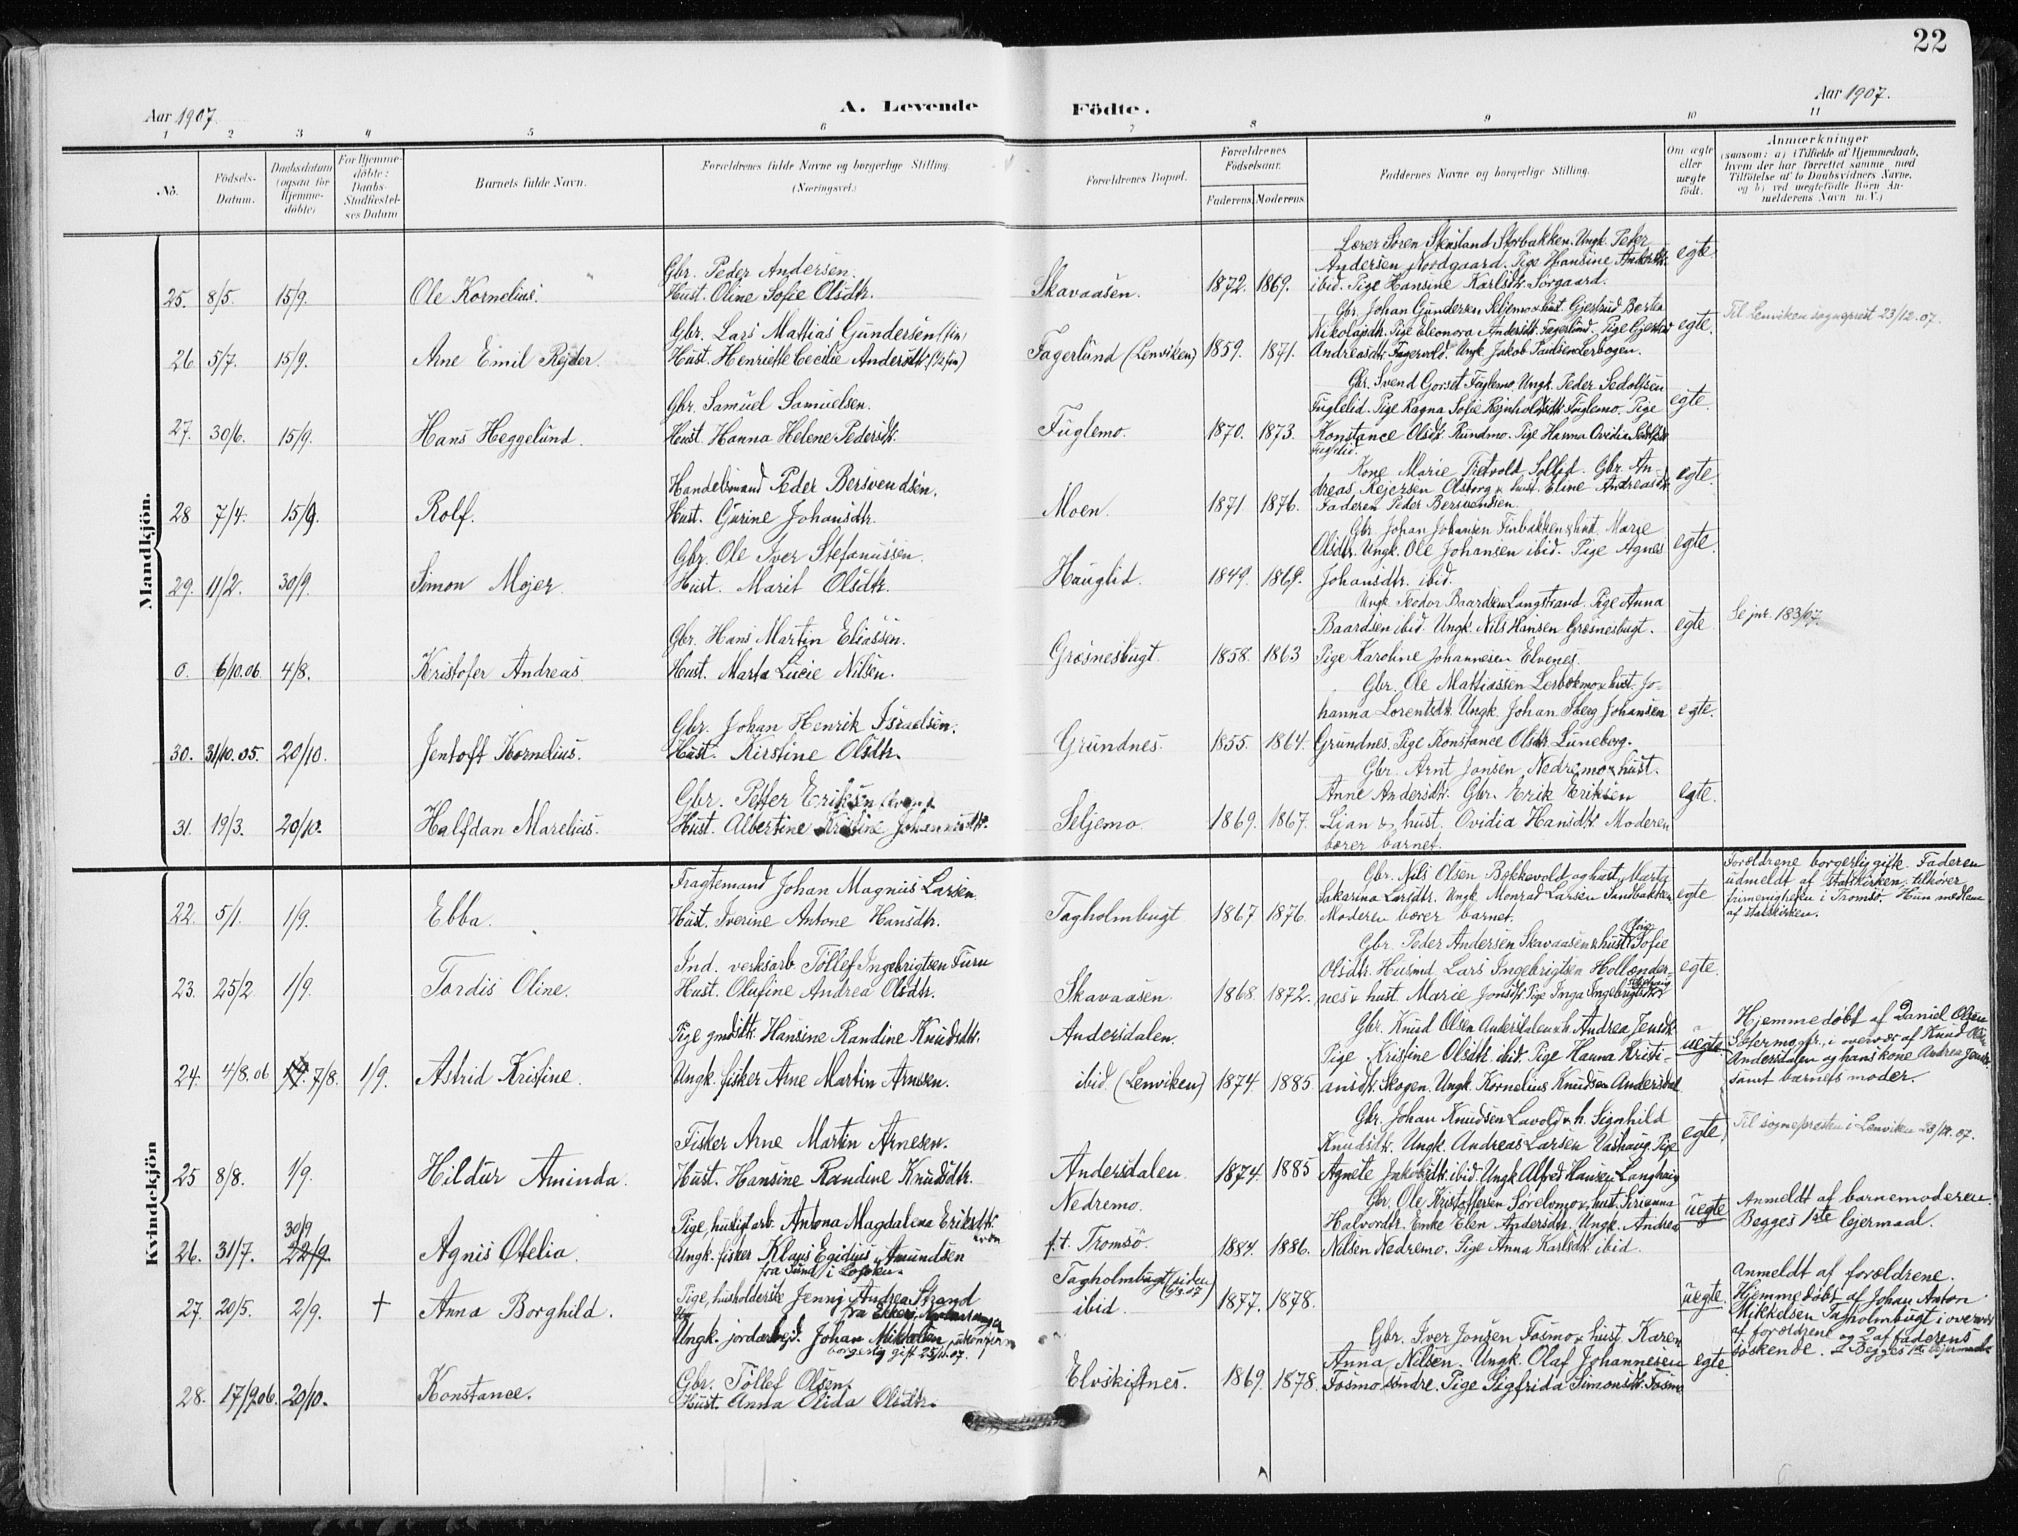 22
Aar 1907.
A. Levende Födte.
Aar 1907.
1 2 3 4 5 6 7 8 9 10 11
No.
Födsels-Datum.
Daabsdatum (ogsaa for Hjemme-döbte)
For Hjemme-döbte: Daabs-Stadfæstel-ses Datum
Barnets fulde Navn.
Forældrenes fulde Navne og borgerlige Stilling. (Næringsvei.)
Forældrenes Bopæl.
Forældrenes Födselsaar.
Faderens. Moderens.
Faddernes Navne og borgerlige Stilling.
Om ægte eller uægte födt.
Anmærkninger
(saasom: a) i Tilfælde af Hjemmedaab,
hvem der har forrettet samme, med
Tilföielse af to Daabsvidners Navne,
og b) ved uægtefödte Börn An-
melderens Navn m. V.)
Mandkjön.
25. 8/5. 15/9. Ole Kornelius.
Gbr. Peder Andersen.
Hust. Oline Sofie Olsdtr.
Skavaasen. 1872. 1869.
Lærer Sören Stensland Storbakken. Ungk. Peder
Andersen Nordgaard. Pige Hansine Andersdtr.
ibid. Pige Hansine Karlsdtr. Sörgaard.
egte.
26. 5/7. 15/9. Arne Emil Rejder.
Gbr. Lars Mattias Gundersen (fin)
Hust. Henriette Cecilie Andersdtr. (1/2 fin)
Fagerlund (Lenviken) 1859. 1871.
Gbr. Johan Gundersen Seljemo & hust. Gjertrud Berten
Nikolajdtr. Pige Eleonora Andersdtr. Fagerlund. Pige Gjertrud
Andreasdtr. Fagervold. Ungk. Jakob Paulsen Lerbogen.
egte.
Til Lenviken sogneprest 23/12.07.
27. 30/6. 15/9. Hans Heggelund.
Gbr. Samuel Samuelsen.
Hust. Hanna Helene Pedersdtr.
Fuglemo. 1870. 1873.
Gbr. Svend Gorset Fuglemo. Ungk. Peder Sedolfsen
Fuglelid. Pige Ragna Sofie Rejnholdsdtr. Fuglemo. Pige
Konstance Olsdtr. Rundmo. Pige Hanna Ovidia
Fuglelid.
egte.
28 7/4. 15/9. Rolf.
Handelsmand Peder Bersvendsen.
Hust. Gurine Johansdtr.
Moen. 1871. 1876.
Kone Marie Tretvold Sollid. Gbr. An-
dreas Rejersen Olsborg & hust. Eline Andreasdtr.
Faderen Peder Bersvendsen.
egte.
29. 11/2. 30/9. Simon Mejer.
Gbr. Ole Iver Stefanussen.
Hust. Marit Olsdtr.
Hauglid. 1849. 1869.
Gbr. Johan Johansen Finbakken & hust. Marie
Olsdtr. Ungk. Ole Johansen ibid. Pige Agnes
Johansdtr. ibid.
egte.
0. 6/10.06 4/8. Kristofer Andreas.
Gbr. Hans Martin Eliassen.
Hust. Marta Lucie Nilsen.
Græsnesbugt. 1858. 1863
Ungk. Teodor Baardsen Langstrand. Pige Anna
Baardsen ibid. Ungk. Nils Hansen Græsnesbugt.
Pige Karoline Johannesen Elvenes.
egte.
Se jnr. 183/07.
30. 31/10.05. 20/10. Jentoft Kornelius.
Gbr. Johan Henrik Israelsen.
Hust. Kirstine Olsdtr.
Grundnes. 1855. 1864.
Gbr. Ole Mattiassen Lerbækmo & hust. Jo-
hanna Lorentsdtr. Ungk. Johan Iberg Johansen
Grundnes. Pige Konstance Olsdtr. Luneborg.
egte.
31. 19/3. 20/10. Halfdan Marelius.
Gbr. Petter Eriksen (kvæn)
Hust. Albertine Kristine Johannesdtr.
Seljemo. 1869. 1867.
Gbr. Arnt Jonsen Nedremo & hust.
Anne Andersdtr. Gbr. Erik Eriksen
Lian & hust. Ovidia Hansdtr. Moderen
bærer barnet.
egte.
Kvindekjön
22. 5/1. 1/9. Ebba.
Fragtemand Johan Magnus Larsen.
Hust. Iverine Antone Hansdtr.
Tagholmbugt 1867 1876.
Gbr. Nils Olsen Bakkevold og hust. Marta
Sakarina Larsdtr. Ungk Monrad Larsen Sandbakken
Moderen bærer barnet.
egte
Forældrene borgerlig gifte. Faderen
udmeldt af statskirken; tilhører
frimenigheden i Tromsö. Hun medlem
af statskirken.
23. 25/2 1/9. Tordis Oline.
Ind. verksarb. Töllef Ingebrigtsen Furu
Hust. Olufine Andrea Olsdtr.
Skavaasen. 1868. 1872.
Gbr. Peder Andersen Skavaasen & hust. Oline Sofie
Olsdtr. Husmd. Lars Ingebrigtsen Hollænder-
nes & hust. Marie Jonsdtr. Pige Inga Ingebrigtsdtr.
egte.
24. 4/8.06 7/8. 1/9. Astrid Kristine.
Pige gmdsdtr. Hansine Randine Knudsdtr.
Ungk. fisker Arne Martin Arnesen.
Andersdalen.
ibid. (Lenviken) 1874. 1885.
Gbr. Knud Olsen Andersdalen & h. Andrea Jensdtr.
Pige Kristine Olsdtr. ibid. Pige Hanna Kristi-
ansdtr. Skogen. Ungk. Kornelius Knudsen Andersdal.
uegte.
Hjemmedöbt af Daniel Olsen
Sætermo fr., i overvær af Knud Olsen
Andersdalen og hans kone Andrea Jensd.
samt barnets moder.
25 8/8. 1/9. Hildur Aminda.
Fisker Arne Martin Arnesen.
Hust. Hansine Randine Knudsdtr.
Andersdalen 1874. 1885
Gbr. Johan Knudsen Lavold & h. Signhild
Knudsdtr. Ungk. Andreas Larsen Vashaug. Pige
Agnete Jakobsdtr. ibid. Ungk Alfred Hansen Langhaug
egte.
Til sogneprosten i Lenviken 23/12.07.
26. 31/7. 22/9. 30/9 Agnis Otelia.
Pige, husligt arb. Antona Magdalena Eriksdtr. kvæn
Ungk. fisker Klaus Egidius Amundsen
fra Sund i Lofoten.
Nedremo.
f.t. Tromsö. 1884. 1886.
Gbr. Ole Kristoffersen Sörelvmo & hust. Serianna
Halvordtr. Enke Elen Andersdtr. Ungk. Andrea
Nilsen Nedremo. Pige Anna Karlsdtr. ibid.
uegte
Anmeldt af barnemoderen.
Begges 1ste lejermaal.
27. 20/5. 2/9. † Anna Borghild.
Pige, husholderske Jenny Andrea Strand
Ungk. jordarbejd. Johan Mikkelsen
borgerlig gift 25/11.07.
Tagholmbugt (siden
ibid. 1877. 1878.
uegte.
Anmeldt af forældrene.
Hjemmedöbt af Johan Anton
Mikkelsen Tagholmbugt i overvær
af forældrene og 2 af faderens
söskende. Begges 1ste lejermaal
28. 17/9.06. 20/10. Konstance.
Gbr. Töllef Olsen.
Hust. Anna Olida Olsdtr.
Elvskiftnes. 1869. 1878.
Gbr. Iver Jonsen Fosmo & hust. Karen
Anna Nilsen. Ungk. Olaf Johannesen
Fosmo söndre. Pige Sigfrida Simonsdtr. Fosmo
egte.